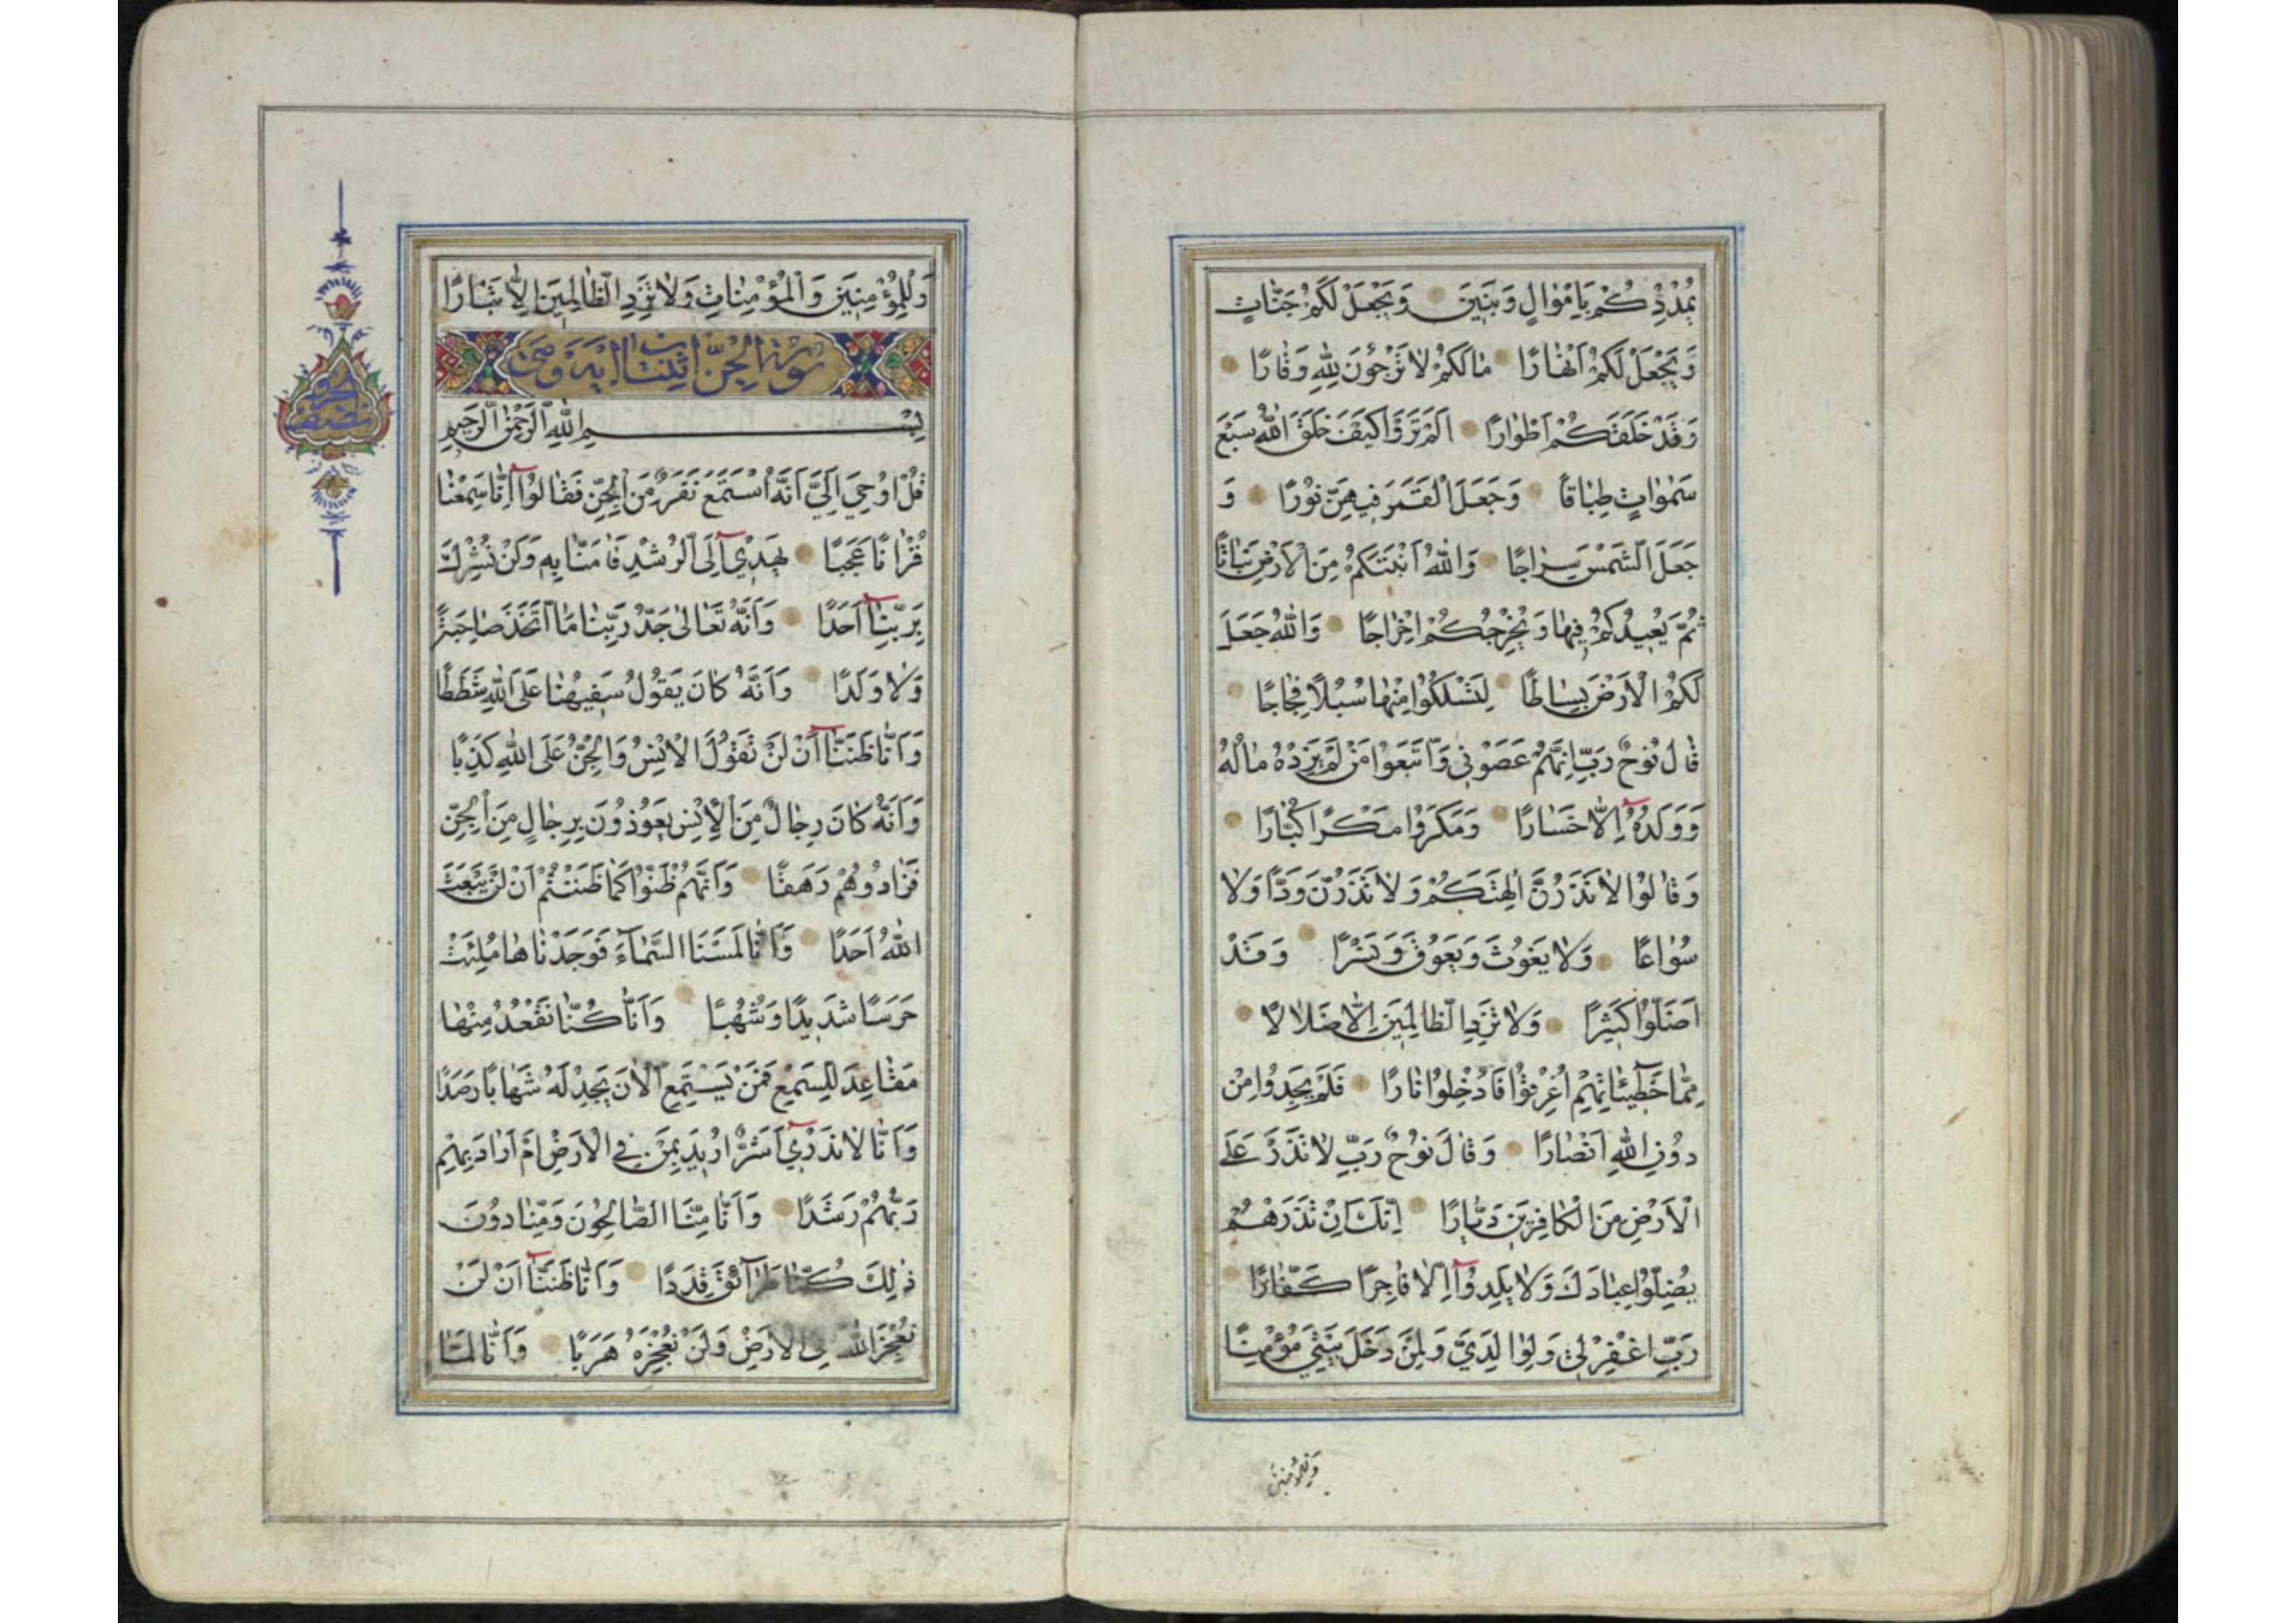 يُمْدِدْكُمْ بِاَمْوٰالٍ وَبَنٖينَ وَيَجْعَلْ لَكُمْ جَنّٰاتٍ
وَيَجْعَلْ لَكُمْ اَنْهٰارًا مٰالَكُمْ لٰا تَرْجُوْنَ لِلّٰهِ وَقٰارًا
وَقَدْ خَلَقَكُمْ اَطْوٰارًا اَلَمْ تَرَوْا كَيْفَ خَلَقَ اللّٰهُ سَبْعَ
سَمٰوٰاتٍ طِبٰاقًا وَجَعَلَ الْقَمَرَ فٖيهِنَّ نُوْرًا وَ
جَعَلَ الشَّمْسَ سِرٰاجًا وَاللّٰهُ اَنْبَتَكُمْ مِنَ الْاَرْضِ نَبٰاتًا
ثُمَّ يُعٖيدُكُمْ فٖيهٰا وَيُخْرِجُكُمْ اِخْرٰاجًا وَاللّٰهُ جَعَلَ
لَكُمُ الْاَرْضَ بِسٰاطًا لِتَسْلُكُوْا مِنْهٰا سُبُلًا فِجٰاجًا
قٰالَ نُوْحٌ رَبِّ اِنَّهُمْ عَصَوْنٖي وَاتَّبَعُوْا مَنْ لَمْ يَزِدْهُ مٰالُهُ
وَوَلَدُهُ اِلّٰا خَسٰارًا وَمَكَرُوْا مَكْرًا كُبّٰارًا
وَقٰالُوْا لٰا تَذَرُنَّ اٰلِهَتَكُمْ وَلٰا تَذَرُنَّ وَدًّا وَلٰا
سُوٰاعًا وَلٰا يَغُوْثَ وَيَعُوْقَ وَنَسْرًا وَقَدْ
اَضَلُّوْا كَثٖيرًا وَلٰا تَزِدِ الظّٰالِمٖينَ اِلّٰا ضَلٰالًا
مِمّٰا خَطٖٓيـٰٔاتِهِمْ اُغْرِقُوْا فَاُدْخِلُوْا نٰارًا فَلَمْ يَجِدُوْا مِنْ
دُوْنِ اللّٰهِ اَنْصٰارًا وَقٰالَ نُوْحٌ رَبِّ لٰا تَذَرْ عَلَى
الْاَرْضِ مِنَ الْكٰافِرٖينَ دَيّٰارًا اِنَّكَ اِنْ تَذَرْهُمْ
يُضِلُّوْا عِبٰادَكَ وَلٰا يَلِدُوْٓا اِلّٰا فٰاجِرًا كَفّٰارًا
رَبِّ اغْفِرْ لٖي وَلِوٰالِدَيَّ وَلِمَنْ دَخَلَ بَيْتِيَ مُؤْمِنًا
وَلِلْمُؤْمِنٖينَ
وَلِلْمُؤْمِنٖينَ وَالْمُؤْمِنٰاتِ وَلٰا تَزِدِ الظّٰالِمٖينَ اِلّٰا تَبٰارًا
سورة الجنّ اية وهي
بِسْمِ اللّٰهِ الرَّحْمٰنِ الرَّحٖيمِ
قُلْ اُوْحِيَ اِلَيَّ اَنَّهُ اسْتَمَعَ نَفَرٌ مِنَ الْجِنِّ فَقٰالُوْٓا اِنّٰا سَمِعْنٰا
قُرْاٰنًا عَجَبًا يَهْدٖٓي اِلَى الرُّشْدِ فَاٰمَنّٰا بِهِ وَلَنْ نُشْرِكَ
بِرَبِّنٰٓا اَحَدًا وَاَنَّهُ تَعٰالٰى جَدُّ رَبِّنٰا مَا اتَّخَذَ صٰاحِبَةً
وَلٰا وَلَدًا وَاَنَّهُ كٰانَ يَقُوْلُ سَفٖيهُنٰا عَلَى اللّٰهِ شَطَطًا
وَاَنّٰا ظَنَنّٰٓا اَنْ لَنْ تَقُوْلَ الْاِنْسُ وَالْجِنُّ عَلَى اللّٰهِ كَذِبًا
وَاَنَّهُ كٰانَ رِجٰالٌ مِنَ الْاِنْسِ يَعُوْذُوْنَ بِرِجٰالٍ مِنَ الْجِنِّ
فَزٰادُوْهُمْ رَهَقًا وَاَنَّهُمْ ظَنُّوْا كَمٰا ظَنَنْتُمْ اَنْ لَنْ يَبْعَثَ
اللّٰهُ اَحَدًا وَاَنّٰا لَمَسْنَا السَّمٰآءَ فَوَجَدْنٰاهٰا مُلِئَتْ
حَرَسًا شَدٖيدًا وَشُهُبًا وَاَنّٰا كُنّٰا نَقْعُدُ مِنْهٰا
مَقٰاعِدَ لِلسَّمْعِ فَمَنْ يَسْتَمِعِ الْاٰنَ يَجِدْ لَهُ شِهٰابًا رَصَدًا
وَاَنّٰا لٰا نَدْرٖٓي اَشَرٌّ اُرٖيدَ بِمَنْ فِي الْاَرْضِ اَمْ اَرٰادَ بِهِمْ
رَبُّهُمْ رَشَدًا وَاَنّٰا مِنَّا الصّٰالِحُوْنَ وَمِنّٰا دُوْنَ
ذٰلِكَ كُنّٰا طَرٰآئِقَ قِدَدًا وَاَنّٰا ظَنَنّٰٓا اَنْ لَنْ
نُعْجِزَ اللّٰهَ فِي الْاَرْضِ وَلَنْ نُعْجِزَهُ هَرَبًا وَاَنّٰا لَمّٰا